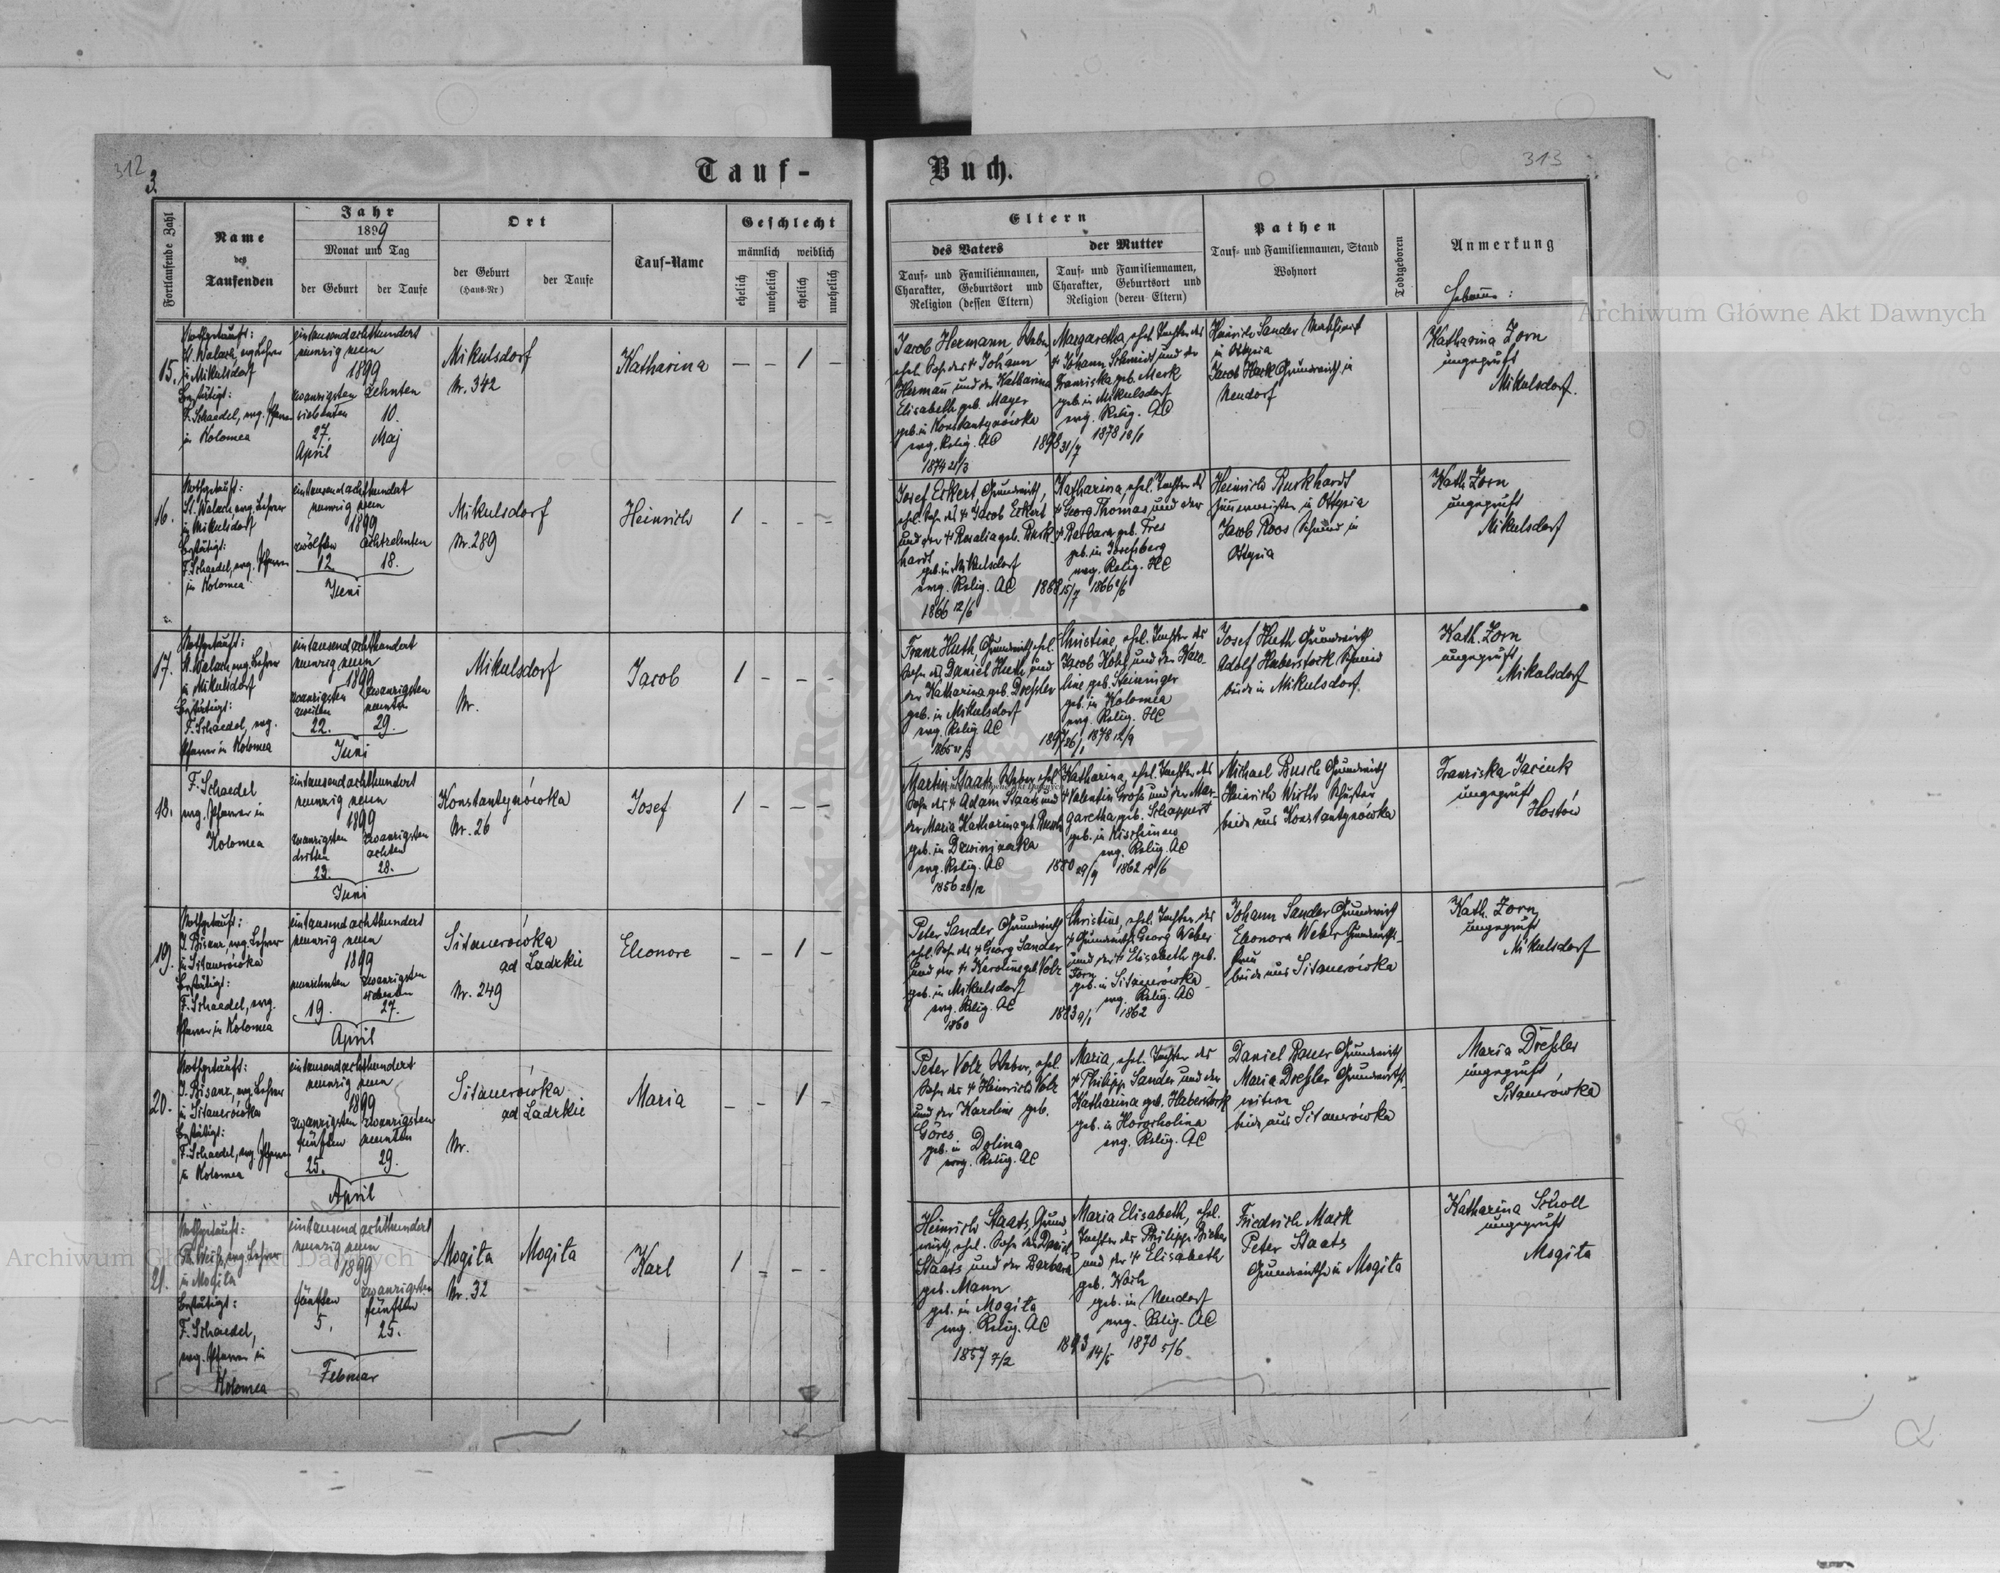 312
3.
Tauf-
Fortlaufende Zahl
Name
des
Taufenden
Jahr
1899
Monat und Tag
der Geburt
der Taufe
Ort
der Geburt
(Haus-Nr)
der Taufe
Tauf-Name
Geschlecht
männlich
weiblich
ehelich
unehelich
ehelich
unehelich
15.
Nothgetauft:
St. Walach, evg. Lehrer
in Mikulsdorf
Bestätigt:
F. Schaedel, evg. Pfarrer
in Kolomea
eintausendachthundert
neunzig neun
1899
zwanzigsten
siebenten
27.
April
zehnten
10.
Maj
Mikulsdorf
Nr. 342
Katharina
— – 1 –
16.
Nothgetauft:
St. Walach, evg. Lehrer
in Mikulsdorf
Bestätigt:
F. Schaedel, evg. Pfarrer
in Kolomea
eintausendachthundert
neunzig neun
1899
zwölften
12.
achtzehnten
18.
Juni
Mikulsdorf
Nr. 289
Heinrich
1 - - -
17.
Nothgetauft:
St. Walach, evg. Lehrer
in Mikulsdorf
Bestätigt:
F. Schaedel, evg.
Pfarrer in Kolomea
eintausendachthundert
neunzig neun
1899
zwanzigsten
zweiten
22.
zwanzigsten
neunten
29.
Juni
Mikulsdorf
Nr.
Jacob
1 - - -
18.
F. Schaedel
evg. Pfarrer in
Kolomea
eintausendachthundert
neunzig neun
1899
zwanzigsten
dritten
23.
zwanzigsten
achten
28.
Juni
Konstantynówka
Nr. 26
Josef
1 - - -
19.
Nothgetauft:
J. Bisanz, evg. Lehrer
in Sitauerówka
Bestätigt:
F. Schaedel, evg.
Pfarrer in Kolomea
eintausend achthundert
neunzig neun
1899
neunzehnten
19.
zwanzigsten
siebenten
27.
April
Sitauerówka
ad Ladzkie
Nr. 249
Eleonore
- - 1 -
20.
Nothgetauft:
J. Bisanz, evg. Lehrer
in Sitauerówka
Bestätigt:
F. Schaedel, evg. Pfarrer
in Kolomea
eintausendachthundert
neunzig neun
1899
zwanzigsten
fünften
25.
zwanzigsten
neunten
29.
April
Sitauerówka
ad Ladzkie
Nr.
Maria
- - 1 -
21.
Nothgetauft:
Ph. Weiß, evg. Lehrer
in Mogiła
Bestätigt:
F. Schaedel,
evg. Pfarrer in
Kolomea
eintausend achthundert
neunzig neun
1899
fünften
5.
zwanzigsten
fünften
25.
Februar
Mogiła
Nr. 32
Mogiła
Karl
1 - - -
313
Buch.
Eltern
des Vaters
der Mutter
Tauf- und Familiennamen,
Charakter, Geburtsort und
Religion (dessen Eltern)
Tauf- und Familiennamen,
Charakter, Geburtsort und
Religion (deren Eltern)
Pathen
Tauf- und Familiennamen, Stand
Wohnort
Todtgeboren
Anmerkung
Hebamme:
Jacob Hermann, Weber,
ehel. Sohn des † Johann
Hermann und der Katharina
Elisabeth geb. Mayer
geb. in Konstantynówka
evg. Relig. AC
1874 21/3
1898 31/7
Margaretha, ehel. Tochter des
† Johann Schmidt und der
Franziska geb. Mark
geb. in Mikulsdorf
evg. Relig. AC
1878 18/1
Heinrich Sander
in Ottynia
Jacob Hark Grundwirth in
Neudorf
Katharina Zorn
ungeprüft
Mikulsdorf.
Josef Eckert, Grundwirth,
ehel. Sohn des † Jacob Eckert
und der † Rosalia geb. Burk-
hardt
geb. in Mikulsdorf
evg. Relig. AC
1866 12/6
1888 15/7
Katharina, ehel. Tochter des
† Georg Thomas und der
† Barbara geb. Fres
geb. in Josefsberg
evg. Relig. HC
1866 /6
Heinrich Burkhardt
in Ottynia
Jacob Roos Schmied in
Ottynia
Kath. Zorn
ungeprüft
Mikulsdorf
Franz Huth, Grundwirth, ehel.
Sohn des Daniel Huth und
der Katharina geb. Dreßler
geb. in Mikulsdorf
evg. Relig. AC
Christine, ehel. Tochter des
Jacob Kohl und der Karo-
line geb. Steininger
geb. in Kolomea
evg. Relig. HC
1878 12/9
Josef Huth Grundwirth
Adolf Haberstock Schmied
beide in Mikulsdorf.
Kath. Zorn
ungeprüft
Mikulsdorf
Martin Staats, Weber, ehel.
Sohn des † Adam Staats und
der Maria Katharina geb. Busch
geb. in Dzwiniaczka
evg. Relig. AC
1856 26/12
1880 29/9
Katharina, ehel. Tochter des
† Valentin Groß und der Mar-
garetha geb. Schappert
geb. in
evg. Relig. AC
1862 19/6
Michael Busch Grundwirth
Heinrich Wirth Schuster
beide aus Konstantynówka
Franziska Jaciuk
ungeprüft
Hostów
Peter Sander Grundwirth
ehel. Sohn des † Georg Sander
und der † Karoline geb. Volz
geb. in Mikulsdorf
evg. Relig. AC
1860
1883 9/1
Christine, ehel. Tochter des
† Grundwirths Georg Weber
und der † Elisabeth geb.
Zorn
geb. in Sitauerówka
evg. Relig. AC
1862
Johann Sander Grundwirth
Eleonora Weber Grundwirths-
frau
beide aus Sitauerówka
Kath. Zorn
ungeprüft
Mikulsdorf
Peter Volz, Weber, ehel.
Sohn des † Heinrich Volz
und der Karoline geb.
Göres
geb. in Dolina
evg. Relig. AC
Maria, ehel. Tochter des
† Philipp Sander und der
Katharina geb. Haberstock
geb. in Horocholina
evg. Relig. AC
Daniel Bauer Grundwirth
Maria Dreßler Grundwirths-
witwe
beide aus Sitauerówka
Maria Dreßler
ungeprüft
Sitauerówka
Heinrich Staats, Grund-
wirth, ehel. Sohn des David
Staats und der Barbara
geb. Mann
geb. in Mogiła
evg. Relig. AC
1857 7/2
1893 14/5
Maria Elisabeth, ehel.
Tochter des Philipp
und der † Elisabeth
geb. Koch
geb. in Neudorf
evg. Relig. AC
1870 5/6
Friedrich Mark
Peter Staats
Grundwirthe in Mogiła
Katharina Scholl
ungeprüft
Mogiła
Archiwum Główne Akt Dawnych
Archiwum Główne Akt Dawnych